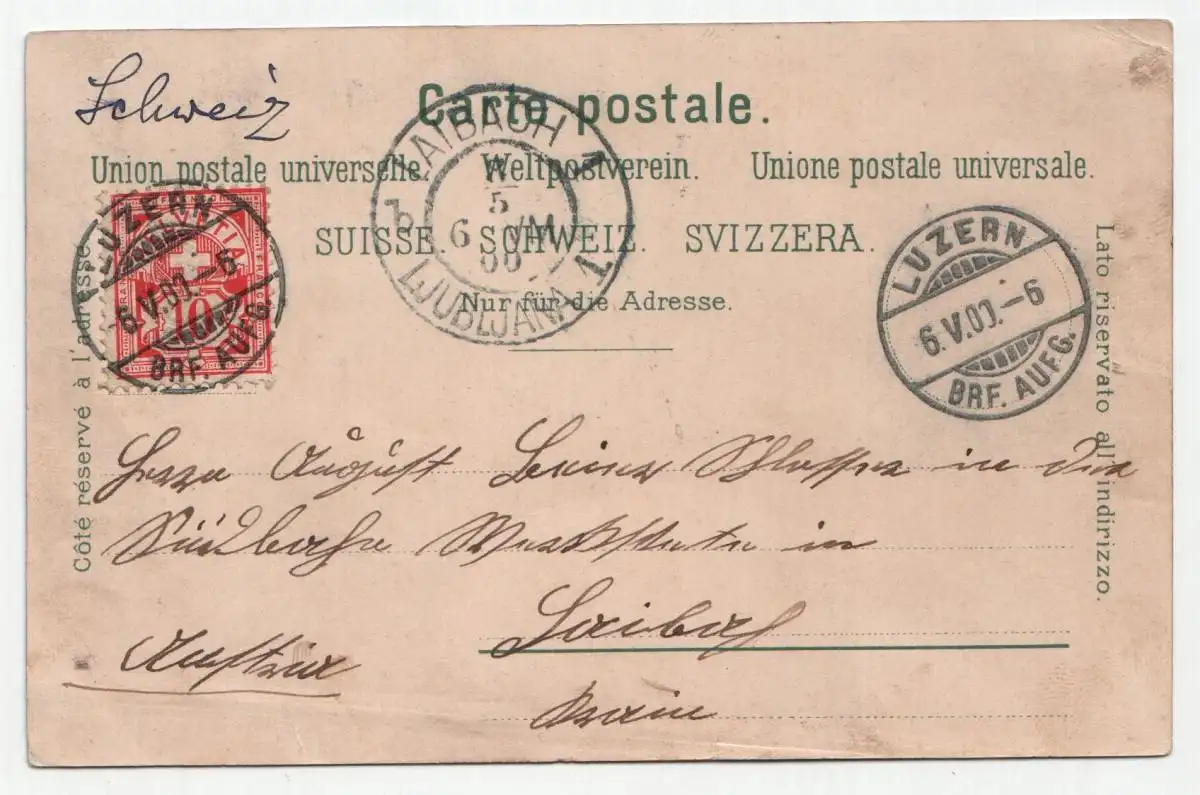 Schweiz
Carte postale.
Union postale universelle. Weltpostverein. Unione postale universale.
SUISSE. SCHWEIZ. SVIZZERA.
Nur für die Adresse.
Côté réservé à l'adresse.
Lato riservato all'indirizzo.
LAIBACH 1
5
6 VM
00
b
LJUBLJANA 1
LUZERN
6.V.00.-6
BRF. AUFG.
10
LUZERN
6.V.00.-6
BRF. AUFG.
Herrn August Schlosser in der
Südbahn Werkstatte in
Laibach
Austria
Krain